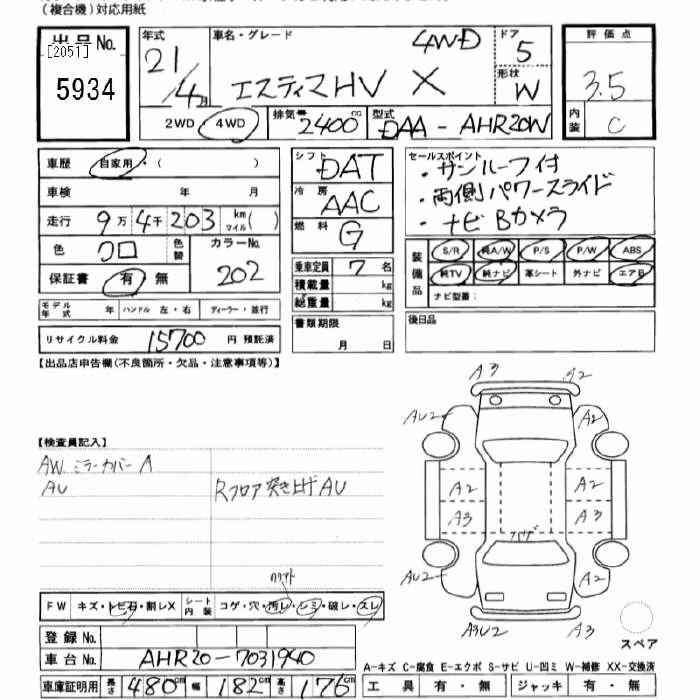 (複合機)対応用紙
出品No.
[2051]
5934
年式
21/4月
車名・グレード
エスティマHV X 4WD
ドア
5
形状
W
評価点
3.5
内装
C
2WD・4WD
排気量
2400cc
型式
DAA-AHR20W
車歴 自家用・( )
車検 年 月
走行 9万4千203 km マイル( )
色 クロ 色替
カラーNo.
202
保証書 有・無
モデル年式 年 ハンドル 左・右 ディーラー・並行
リサイクル料金 15700 円 預託済
シフト DAT
冷房 AAC
燃料 G
乗車定員 7 名
積載量 kg
総重量 kg
書類期限
月 日
セールスポイント
・サンルーフ付
・両側パワースライド
・ナビBカメラ
装備品
S/R 純A/W P/S P/W ABS
純TV 純ナビ 革シート 外ナビ エアB
ナビ型番:
後日品
【出品店申告欄(不良箇所・欠品・注意事項等)】
【検査員記入】
AW ミラーカバー A
AU
Rフロア突き上げAU
A3 A2
AU2 A2
A2 A2
A3 A3
AU2 A2
A3U2 A2
スペア
FW キズ・トビ石・割レX
シート内装 コゲ・穴・汚レ・シミ・破レ・スレ
登録No.
車台No. AHR20-7031940
車庫証明用 長さ 480cm 幅 182cm 高さ 176cm
A-キズ C-腐食 E-エクボ S-サビ U-凹ミ W-補修 XX-交換済
工具 有・無 ジャッキ 有・無